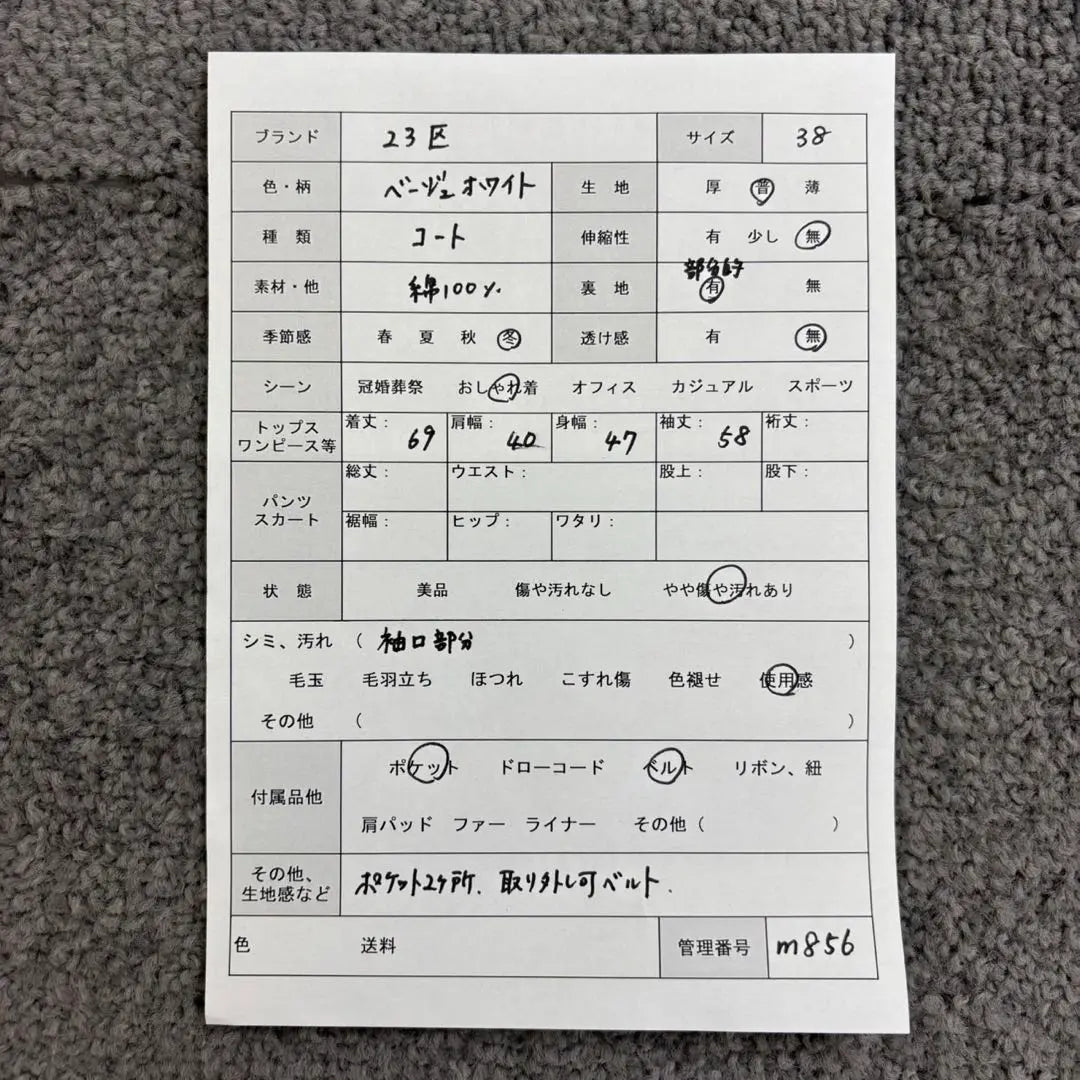 ブランド 23区 サイズ 38
色・柄 ベージュ ホワイト 生 地 厚 普 薄
種 類 コート 伸縮性 有 少し 無
部分的
素材・他 綿100% 裏 地 有 無
季節感 春 夏 秋 冬 透け感 有 無
シーン 冠婚葬祭 おしゃれ着 オフィス カジュアル スポーツ
トップス
ワンピース等 着丈: 69 肩幅: 40 身幅: 47 袖丈: 58 裄丈:
パンツ
スカート 総丈: ウエスト: 股上: 股下:
裾幅: ヒップ: ワタリ:
状 態 美品 傷や汚れなし やや傷や汚れあり
シミ、汚れ ( 袖口部分 )
毛玉 毛羽立ち ほつれ こすれ傷 色褪せ 使用感
その他 ( )
付属品他 ポケット ドローコード ベルト リボン、紐
肩パッド ファー ライナー その他 ( )
その他、
生地感など ポケット2ヶ所、取り外し可ベルト.
色 送料 管理番号 m856